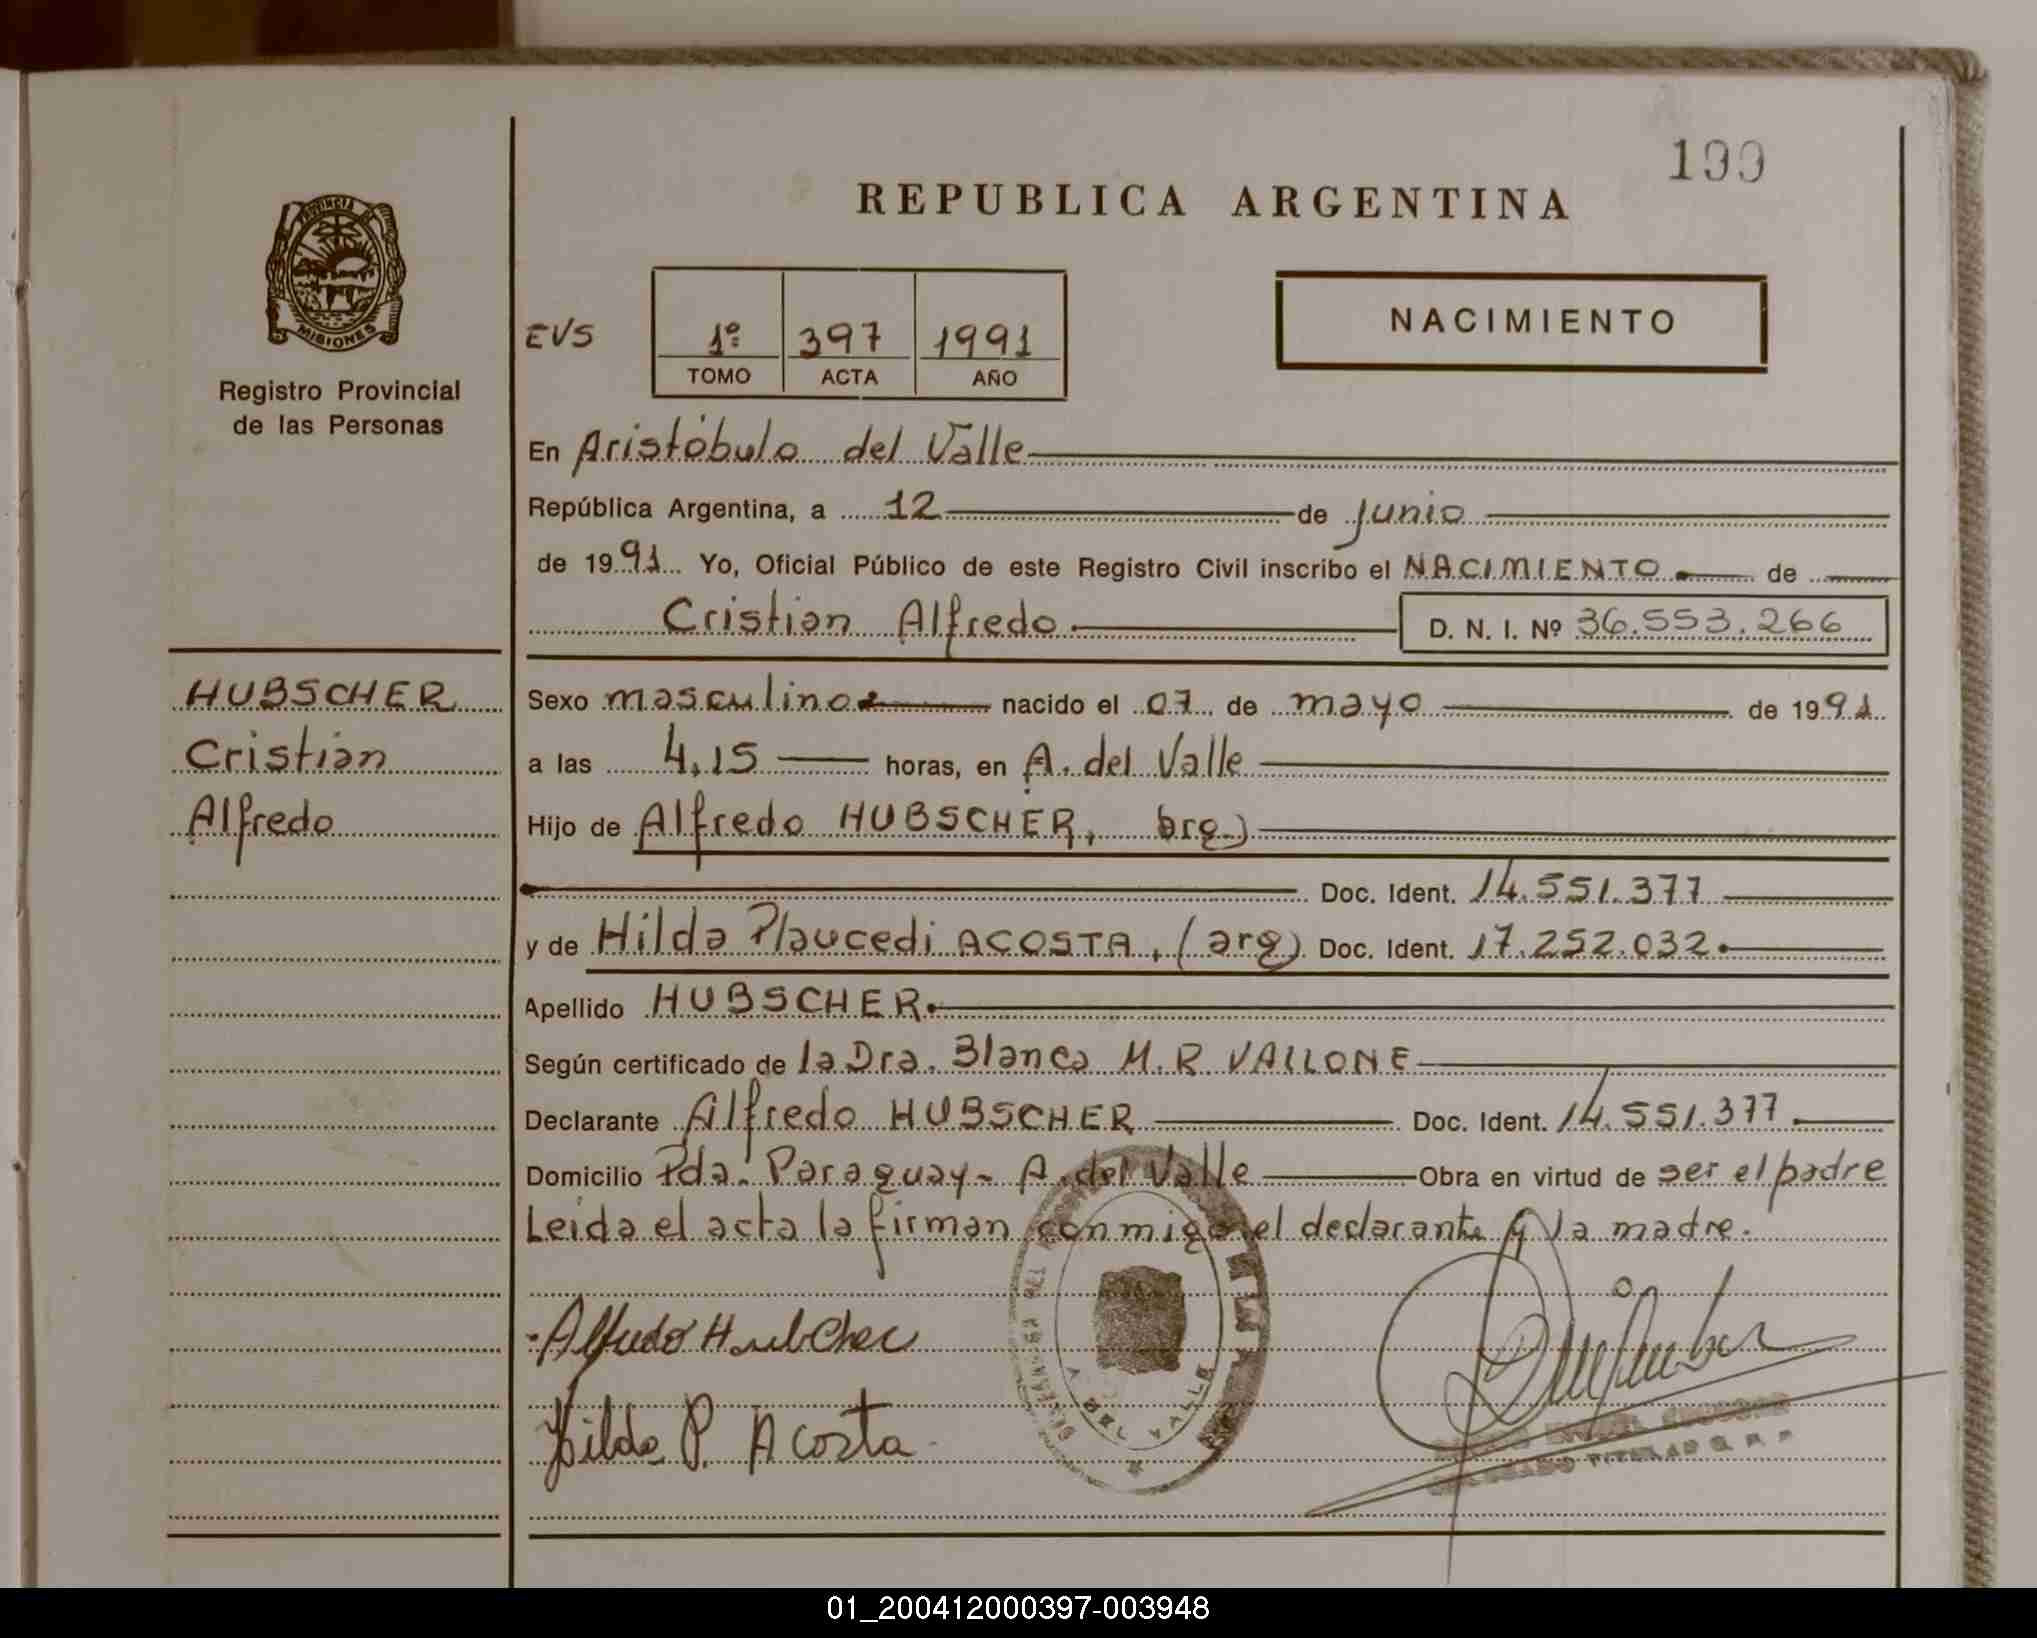 199
REPUBLICA ARGENTINA
PROVINCIA DE
MISIONES
Registro Provincial
de las Personas
EVS
1º 397 1991
TOMO ACTA AÑO
NACIMIENTO
En Aristóbulo del Valle
República Argentina, a 12 de junio
de 1991 Yo, Oficial Público de este Registro Civil inscribo el NACIMIENTO de
Cristian Alfredo D. N. I. Nº 36.553.266
HUBSCHER
Cristian
Alfredo
Sexo masculino nacido el 07 de mayo de 1991
a las 4,15 horas, en A. del Valle
Hijo de Alfredo HUBSCHER, arg)
Doc. Ident. 14.551.377
y de Hilda Plaucedi ACOSTA, (arg) Doc. Ident. 17.252.032
Apellido HUBSCHER
Según certificado de la Dra. Blanca M. R VALLONE
Declarante Alfredo HUBSCHER Doc. Ident. 14.551.377
Domicilio Pda. Paraguay - A. del Valle Obra en virtud de ser el padre
Leida el acta la firman conmigo el declarante y la madre.
Alfredo Hubcher
Hilda P. Acosta
A DEL VALLE
TITULAR R. P. P.
01_200412000397-003948